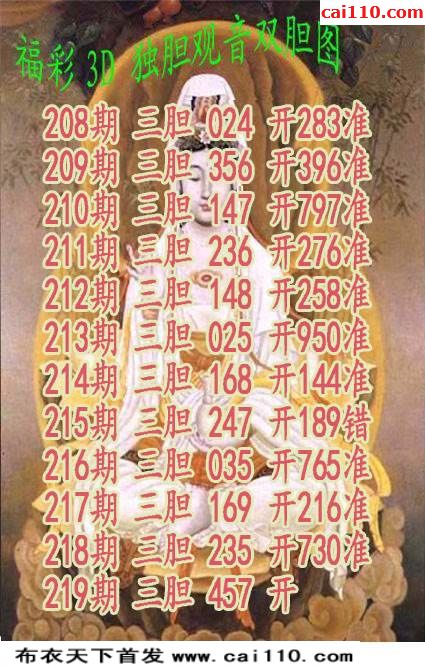 cai110.com
福彩 3D 独胆观音双胆图
208期 三胆 024 开283准
209期 三胆 356 开396准
210期 三胆 147 开797准
211期 三胆 236 开276准
212期 三胆 148 开258准
213期 三胆 025 开950准
214期 三胆 168 开144准
215期 三胆 247 开189错
216期 三胆 035 开765准
217期 三胆 169 开216准
218期 三胆 235 开730准
219期 三胆 457 开
布衣天下首发 www.cai110.com